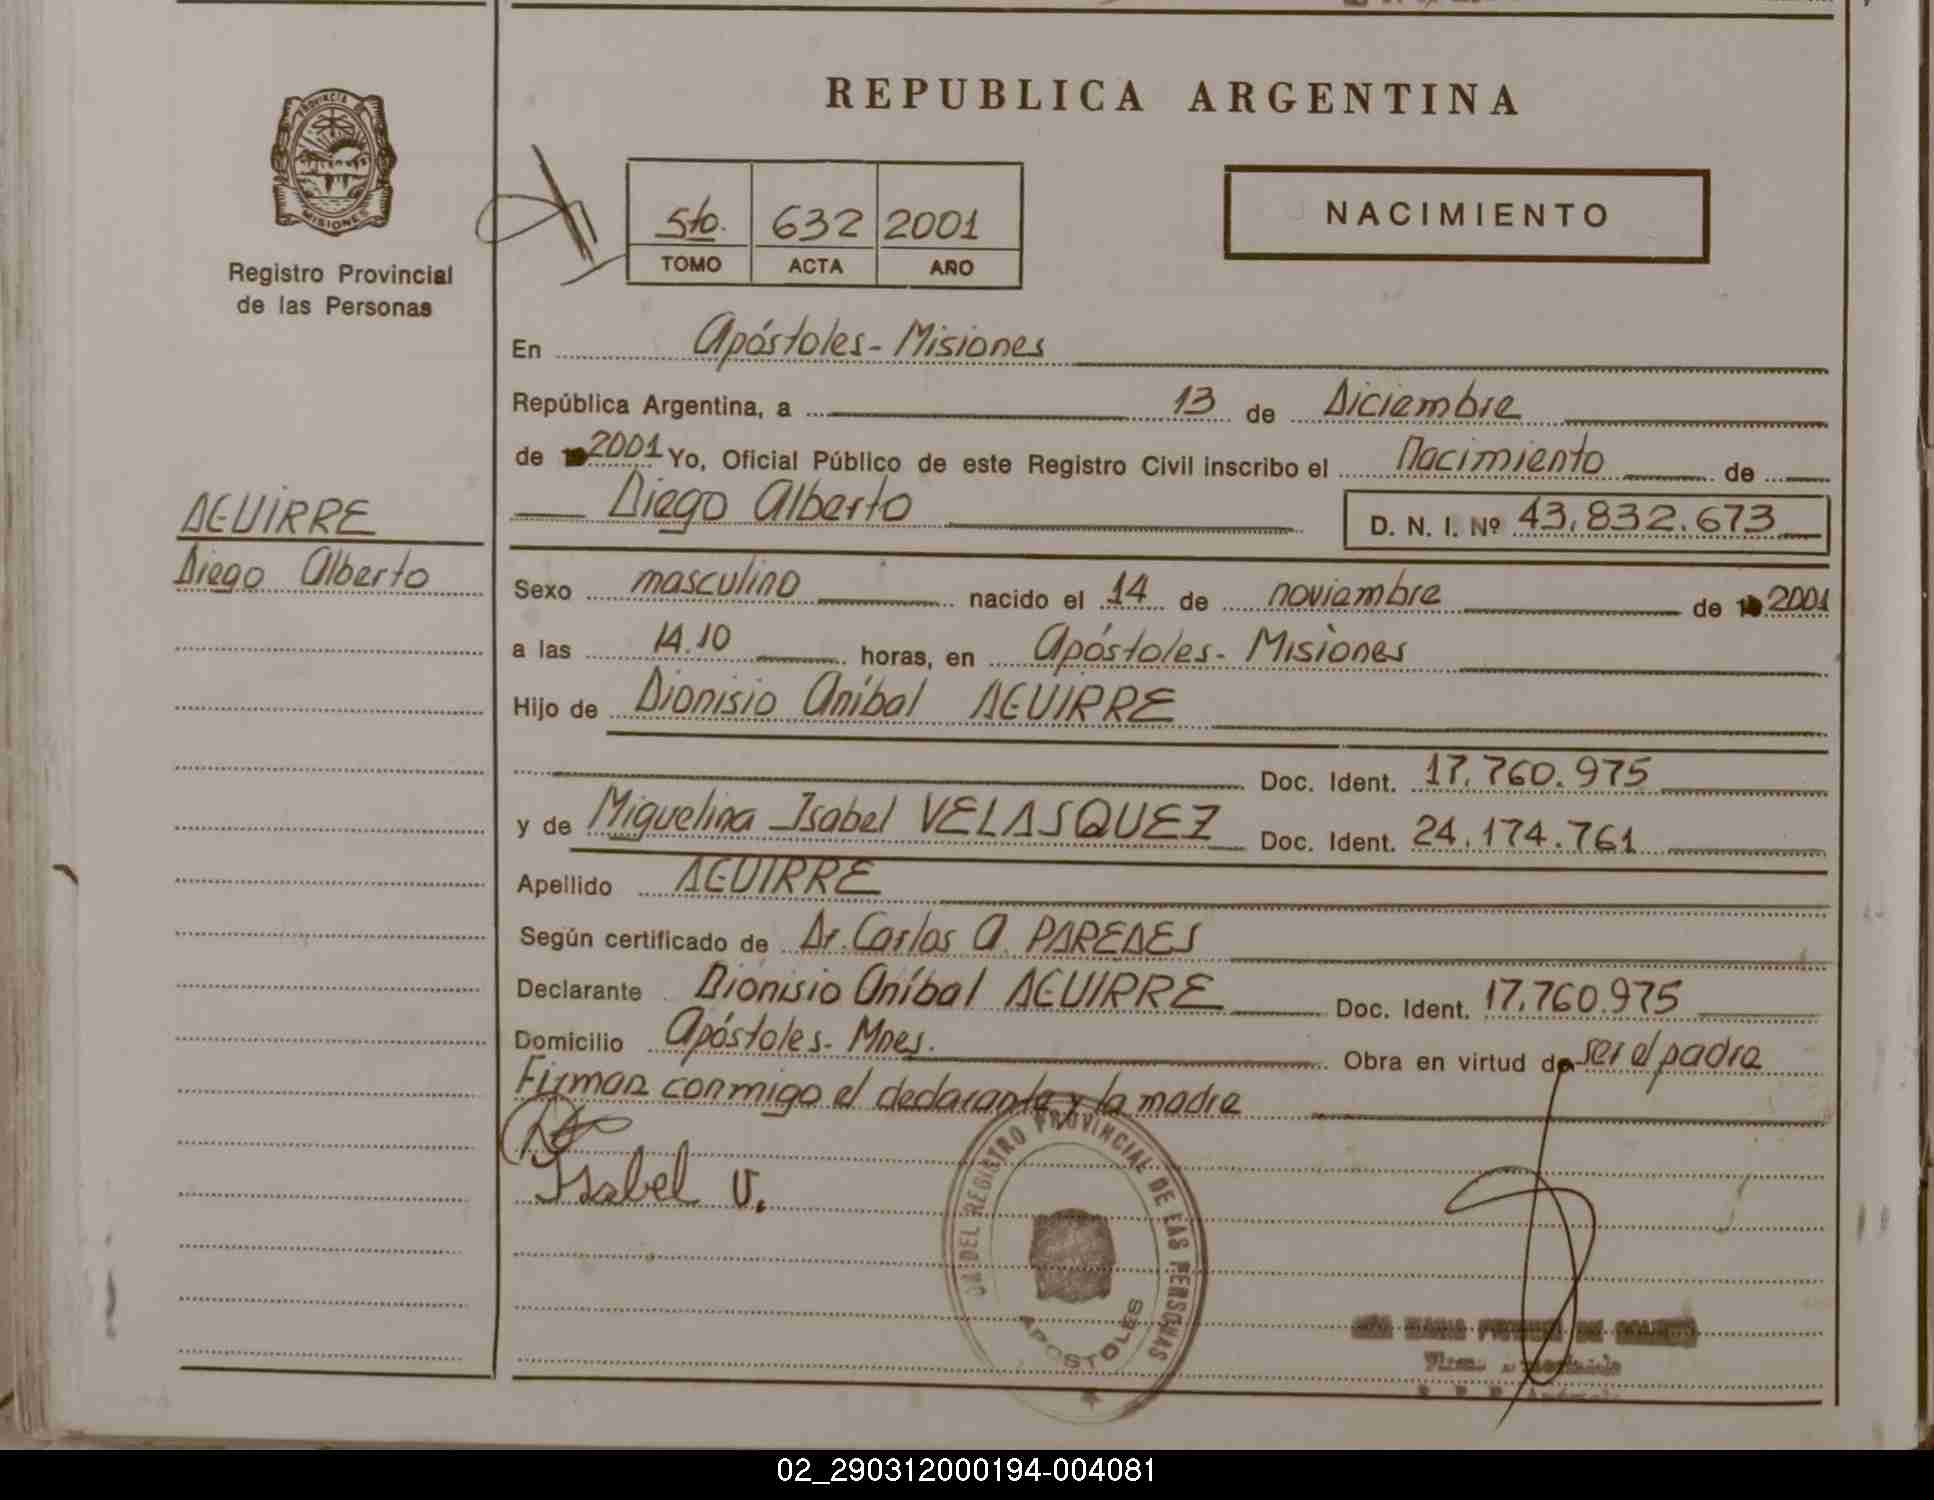 REPUBLICA ARGENTINA
PROVINCIA DE
MISIONES
Registro Provincial
de las Personas
5to. 632 2001
TOMO ACTA AÑO
NACIMIENTO
En Apóstoles - Misiones
República Argentina, a 13 de Diciembre
de 2001 Yo, Oficial Público de este Registro Civil inscribo el Nacimiento de
Diego Alberto D. N. I. Nº 43.832.673
AGUIRRE
Diego Alberto
Sexo masculino nacido el 14 de noviembre de 2001
a las 14.10 horas, en Apóstoles - Misiones
Hijo de Dionisio Aníbal AGUIRRE
Doc. Ident. 17.760.975
y de Miguelina Isabel VELASQUEZ Doc. Ident. 24.174.761
Apellido AGUIRRE
Según certificado de Dr. Carlos A. PAREDES
Declarante Dionisio Aníbal AGUIRRE Doc. Ident. 17.760.975
Domicilio Apóstoles - Mnes. Obra en virtud de ser el padre
Firman conmigo el declarante y la madre
Isabel V.
DEL REGISTRO PROVINCIAL DE LAS PERSONAS
APOSTOLES
02_290312000194-004081